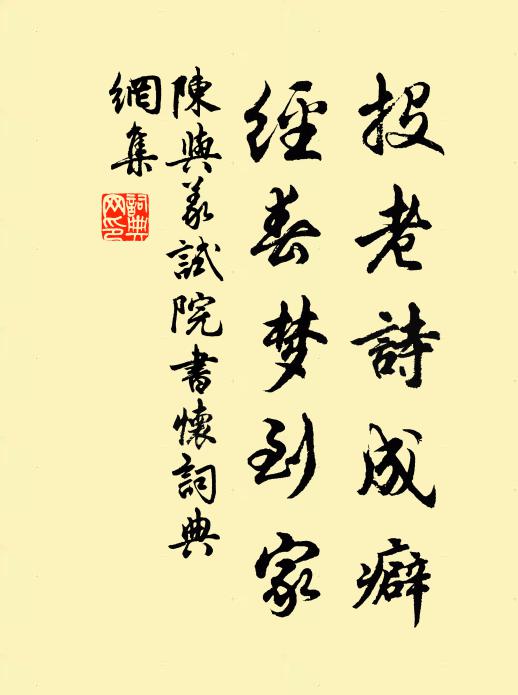 投老詩成癖
經春梦到家
陳與義試院書懷詞典
網集
詞典
网印